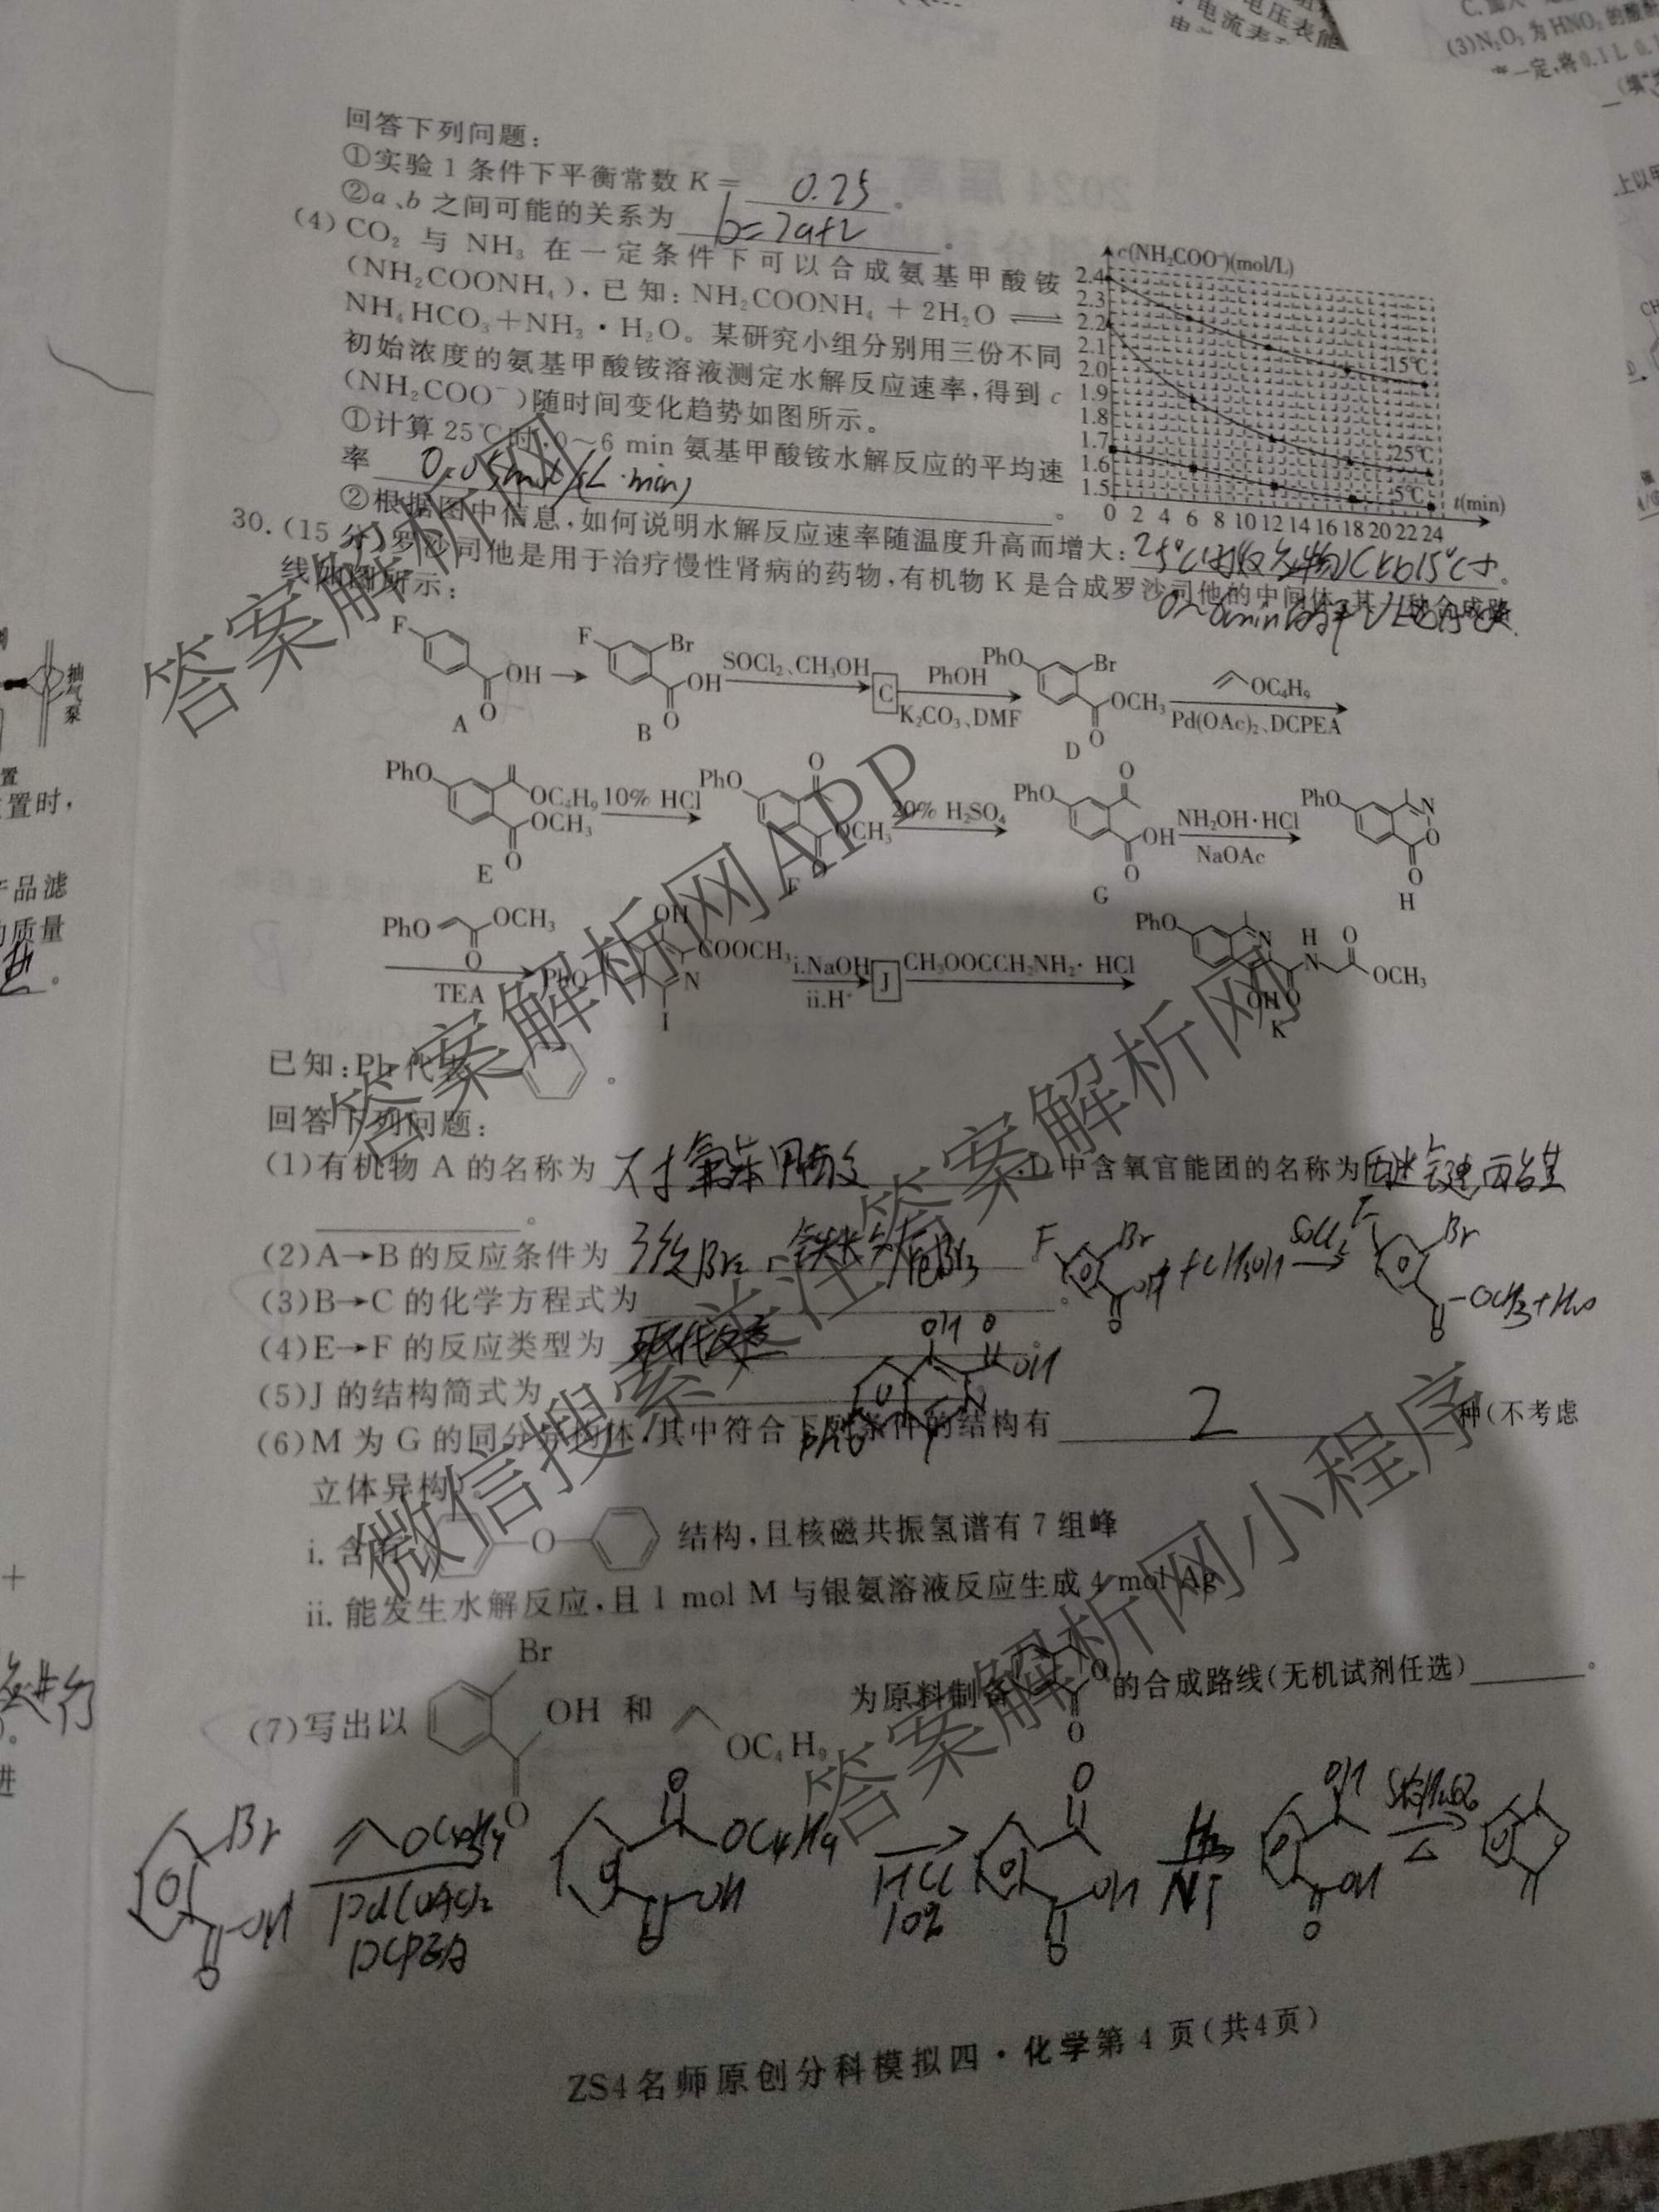 电流表
回答下列问题:
①实验1条件下平衡常数K= 0.25 。
②a、b之间可能的关系为 b=2a+2 。
(4)CO₂与NH₃在一定条件下可以合成氨基甲酸铵
(NH₂COONH₄),已知:NH₂COONH₄+2H₂O⇌
NH₄HCO₃+NH₃·H₂O。某研究小组分别用三份不同
初始浓度的氨基甲酸铵溶液测定水解反应速率,得到c
(NH₂COO⁻)随时间变化趋势如图所示。
①计算25℃时,0~6 min氨基甲酸铵水解反应的平均速
率 0.05mol/(L·min) 。
c(NH₂COO⁻)(mol/L)
2.4
2.3
2.2
2.1
2.0
1.9
1.8
1.7
1.6
1.5
15℃
25℃
5℃
0 2 4 6 8 10 12 14 16 18 20 22 24 t(min)
②根据图中信息,如何说明水解反应速率随温度升高而增大:
30.(15分)罗沙司他是用于治疗慢性肾病的药物,有机物K是合成罗沙司他的中间体,其一种合成路
线如图所示:
F OH O A
F Br OH O B
SOCl₂、CH₃OH
C
PhOH
K₂CO₃、DMF
PhO Br OCH₃ O D
OC₄H₉
Pd(OAc)₂、DCPEA
PhO OC₄H₉ OCH₃ O E
10% HCl
PhO O OCH₃ O F
20% H₂SO₄
PhO O OH O G
NH₂OH·HCl
NaOAc
PhO N O O H
PhO OCH₃ O
TEA
PhO OH COOCH₃ N I
i.NaOH
ii.H⁺
J
CH₃OOCCH₂NH₂·HCl
PhO N H N O OCH₃ OH O K
已知:Ph代表 。
回答下列问题:
(1)有机物A的名称为 对氟苯甲酸 ,D中含氧官能团的名称为 醚键、酯基
。
(2)A→B的反应条件为 液Br₂、铁粉/FeBr₃ 。
(3)B→C的化学方程式为 。
F Br OH O +CH₃OH SOCl₂ F Br -OCH₃+H₂O O
(4)E→F的反应类型为 取代反应 。
(5)J的结构简式为 OH O OH N PhO
(6)M为G的同分异构体,其中符合下列条件的结构有 2 种(不考虑
立体异构)。
i.含有 O 结构,且核磁共振氢谱有7组峰
ii.能发生水解反应,且1 mol M与银氨溶液反应生成4 mol Ag
(7)写出以 Br OH O 和 OC₄H₉ 为原料制备 O O 的合成路线(无机试剂任选) 。
Br OH O OC₄H₉ Pd(OAc)₂ DCPEA O OC₄H₉ OH O HCl 10% O OH O H₂ Ni OH OH O △
ZS4名师原创分科模拟四·化学第4页(共4页)
答案解析网
答案解析网APP
答案解析网
微信搜索关注答案解析网
答案解析网小程序